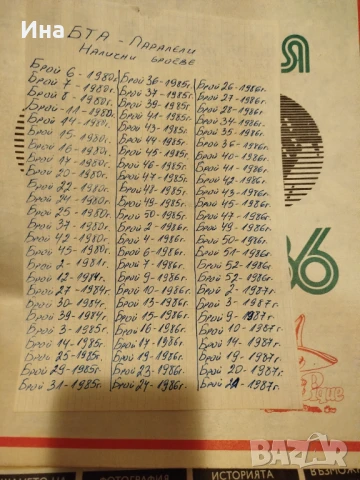 Ина
БТА - Паралели
Налични броеве
Брой 6 - 1980г.
Брой 7 - 1980г.
Брой 8 - 1980г.
Брой 11 - 1980г.
Брой 14 - 1980г.
Брой 15 - 1980г.
Брой 16 - 1980г.
Брой 17 - 1980г.
Брой 20 - 1980г.
Брой 22 - 1980г.
Брой 24 - 1980г.
Брой 25 - 1980г.
Брой 37 - 1980г.
Брой 42 - 1980г.
Брой 45 - 1980г.
Брой 2 - 1981г.
Брой 12 - 1981г.
Брой 27 - 1984г.
Брой 30 - 1984г.
Брой 39 - 1984г.
Брой 3 - 1985г.
Брой 14 - 1985г.
Брой 25 - 1985г.
Брой 29 - 1985г.
Брой 31 - 1985г.
Брой 36 - 1985г.
Брой 37 - 1985г.
Брой 39 - 1985г.
Брой 41 - 1985г.
Брой 43 - 1985г.
Брой 44 - 1985г.
Брой 45 - 1985г.
Брой 46 - 1985г.
Брой 47 - 1985г.
Брой 48 - 1985г.
Брой 49 - 1985г.
Брой 50 - 1985г.
Брой 2 - 1986г.
Брой 4 - 1986г.
Брой 6 - 1986г.
Брой 7 - 1986г.
Брой 9 - 1986г.
Брой 10 - 1986г.
Брой 13 - 1986г.
Брой 15 - 1986г.
Брой 16 - 1986г.
Брой 17 - 1986г.
Брой 19 - 1986г.
Брой 23 - 1986г.
Брой 24 - 1986г.
Брой 26 - 1986г.
Брой 27 - 1986г.
Брой 28 - 1986г.
Брой 34 - 1986г.
Брой 35 - 1986г.
Брой 36 - 1986г.
Брой 40 - 1986г.
Брой 41 - 1986г.
Брой 42 - 1986г.
Брой 43 - 1986г.
Брой 45 - 1986г.
Брой 47 - 1986г.
Брой 49 - 1986г.
Брой 50 - 1986г.
Брой 51 - 1986г.
Брой 52 - 1986г.
Брой 52 - 1986г.
Брой 2 - 1987г.
Брой 3 - 1987г.
Брой 9 - 1987г.
Брой 10 - 1987г.
Брой 14 - 1987г.
Брой 19 - 1987г.
Брой 20 - 1987г.
Брой 21 - 1987г.
Я
86
Pique
BAZAR
ФОТОГРАФИЯ
ИСТОРИЯТА